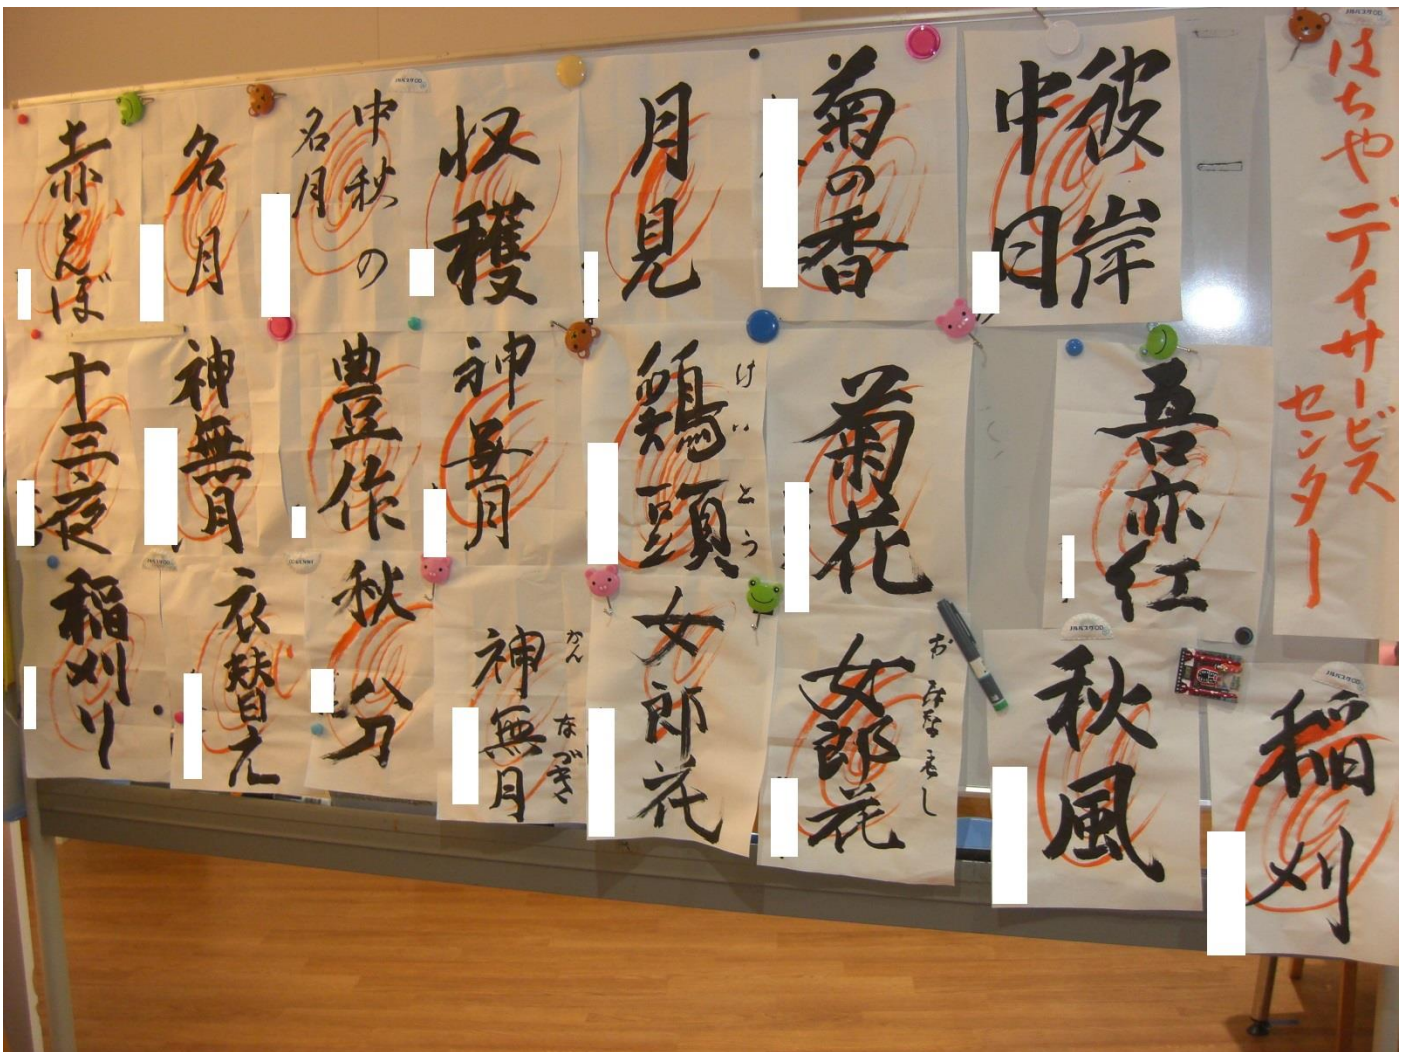 はちやデイサービス
センター
彼岸
中日
菊の香
月見
収穫
中秋の
名月
名月
赤とんぼ
吾亦紅
菊花
鶏頭
けいとう
神無月
豊作
神無月
十三夜
稲刈
秋風
女郎花
おみなえし
女郎花
神無月
かんなづき
秋分
衣替え
稲刈り